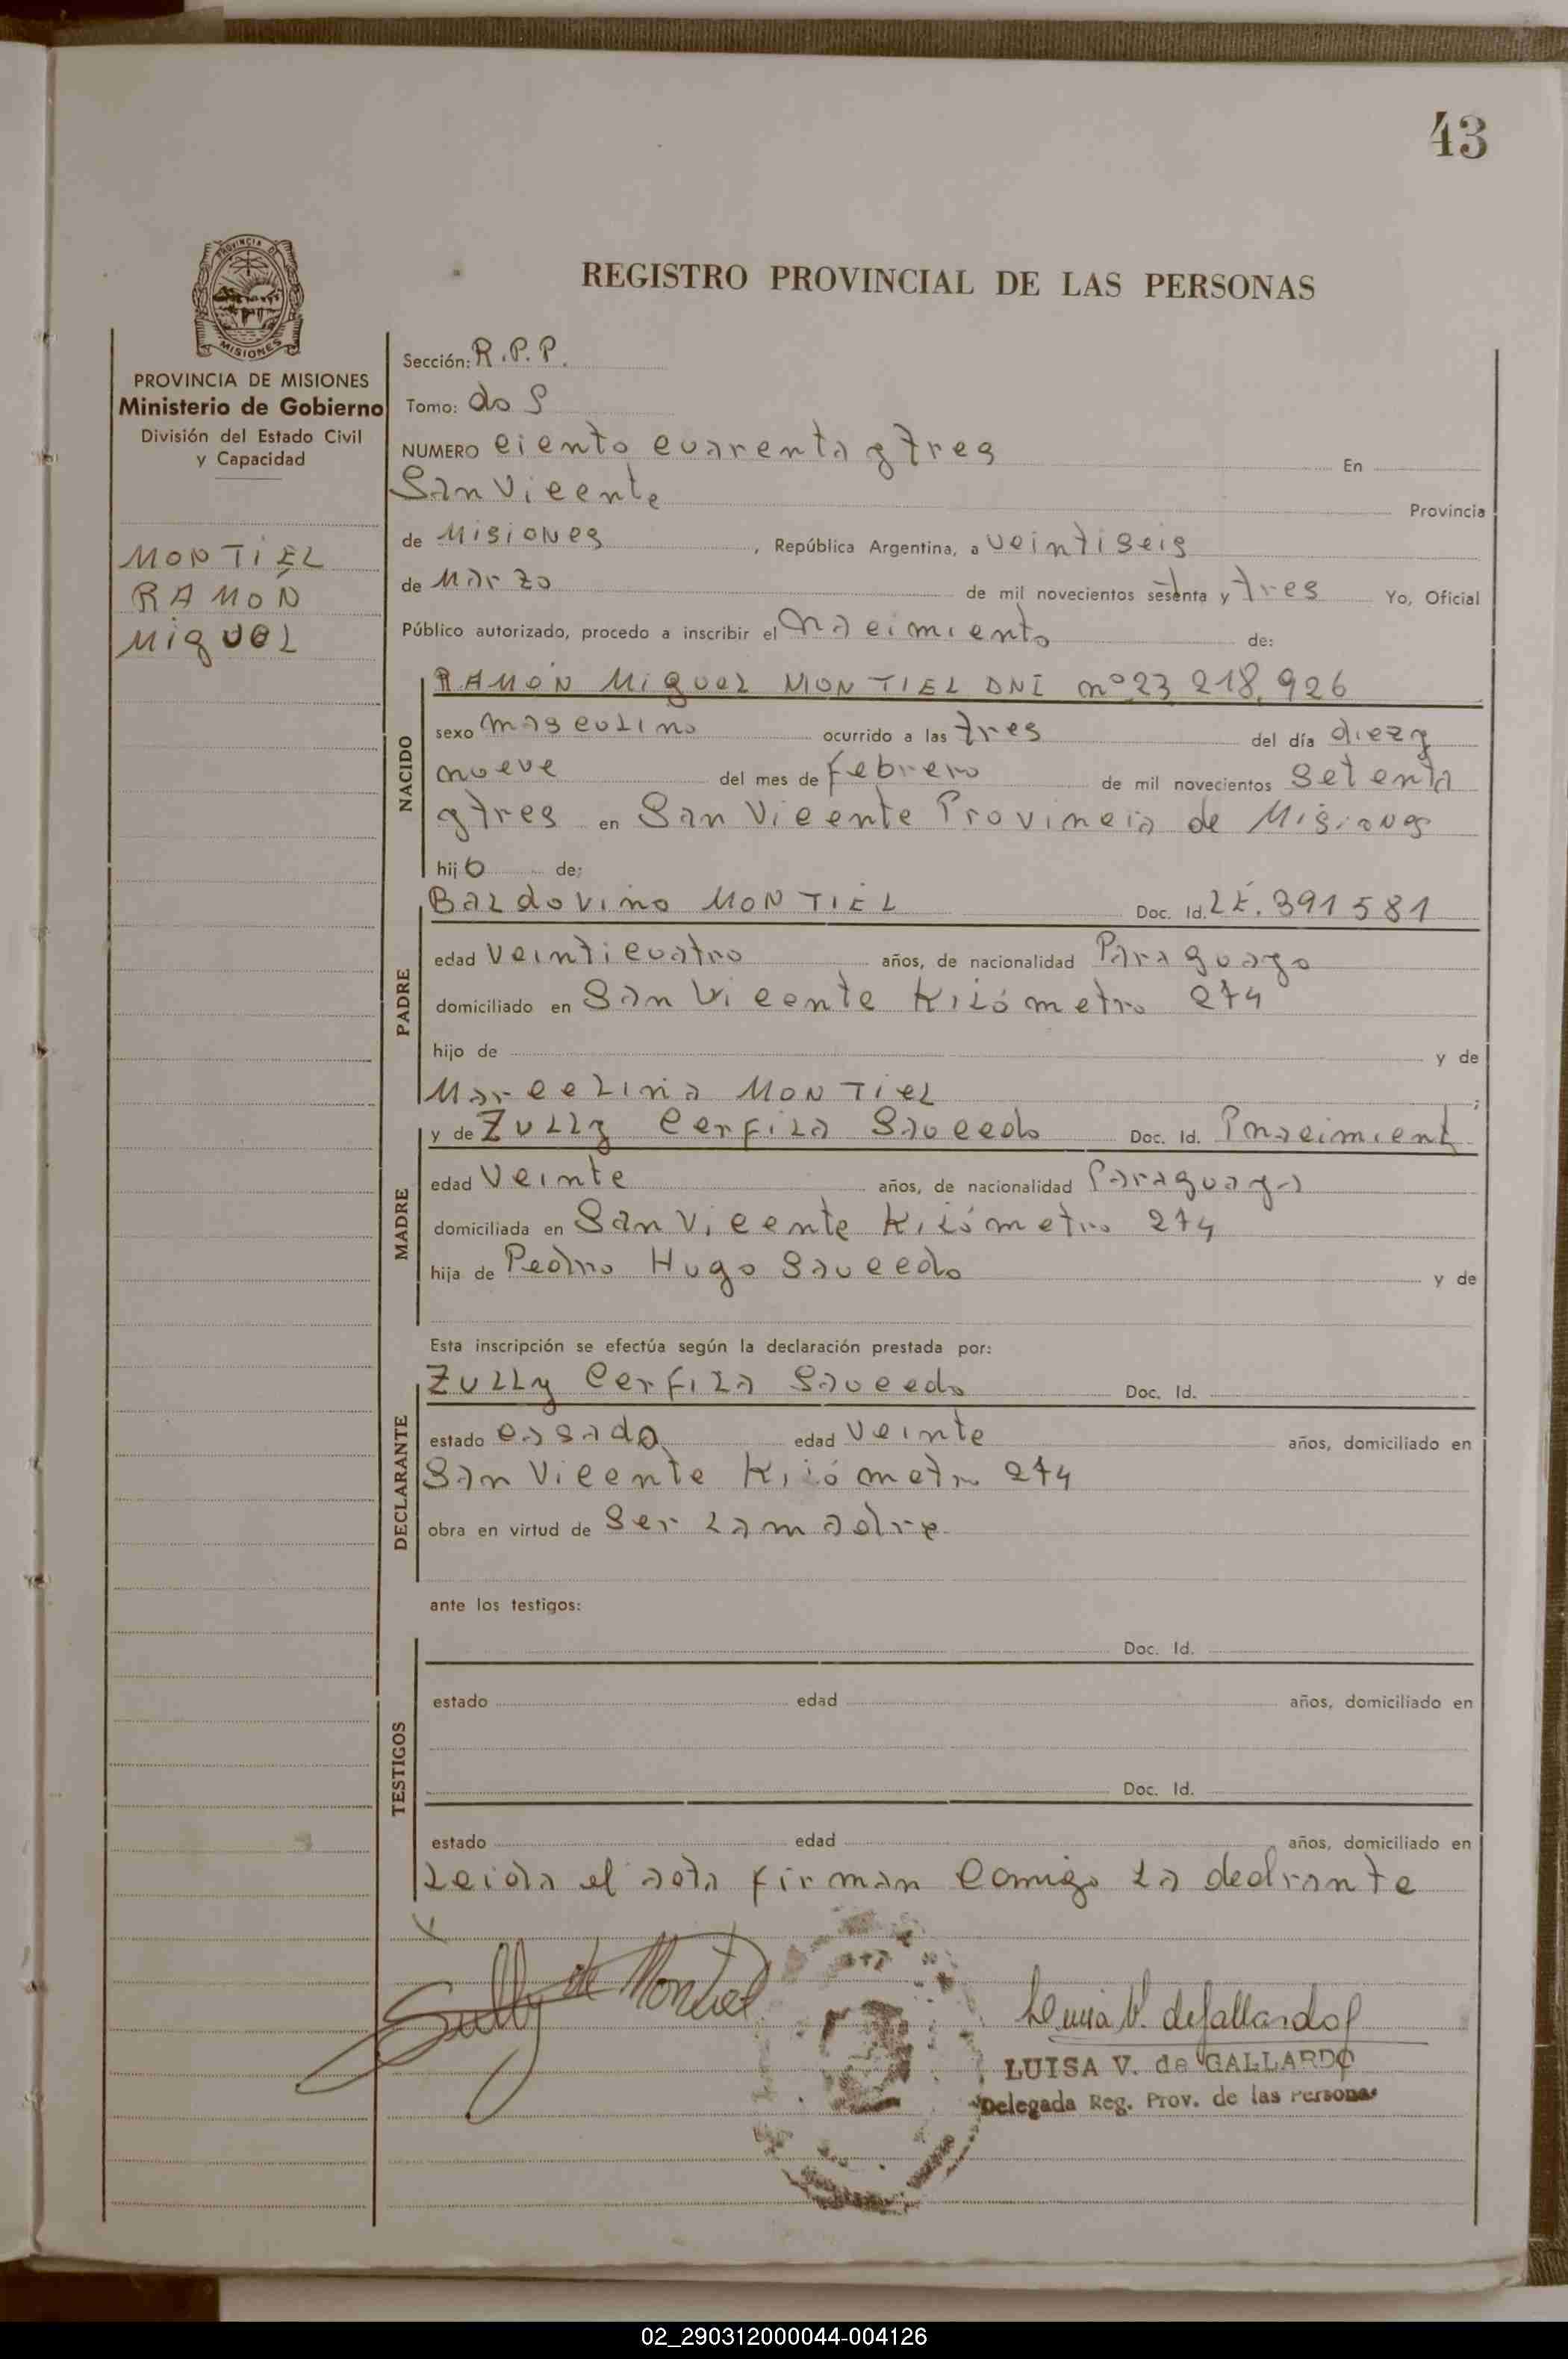 43
PROVINCIA DE
MISIONES
REGISTRO PROVINCIAL DE LAS PERSONAS
PROVINCIA DE MISIONES
Ministerio de Gobierno
División del Estado Civil
y Capacidad
MONTIEL
RAMÓN
MIGUEL
Sección: R.P.P.
Tomo: dos
NUMERO ciento cuarenta y tres En
San Vicente Provincia
de Misiones, República Argentina, a veintiseis
de Marzo de mil novecientos sesenta y tres Yo, Oficial
Público autorizado, procedo a inscribir el nacimiento de:
NACIDO
RAMÓN MIGUEL MONTIEL DNI nº 23.218.926
sexo masculino ocurrido a las tres del día diez y
nueve del mes de febrero de mil novecientos setenta
y tres en San Vicente Provincia de Misiones
hijo de:
PADRE
Baldovino MONTIEL Doc. Id. LE. 391581
edad veinticuatro años, de nacionalidad Paraguayo
domiciliado en San Vicente Kilómetro 274
hijo de y de
Marcelina MONTIEL;
MADRE
y de Zully Cerfila Saucedo Doc. Id. Pnacimient
edad Veinte años, de nacionalidad Paraguaya
domiciliada en San Vicente Kilómetro 274
hija de Pedro Hugo Saucedo y de
Esta inscripción se efectúa según la declaración prestada por:
DECLARANTE
Zully Cerfila Saucedo Doc. Id.
estado casada edad Veinte años, domiciliado en
San Vicente Kilómetro 274
obra en virtud de Ser la madre
ante los testigos:
TESTIGOS
Doc. Id.
estado edad años, domiciliado en
Doc. Id.
estado edad años, domiciliado en
Leida el acta firman comigo la declrante
X
Sully de Montiel
Luisa V. de Gallardo
LUISA V. de GALLARDO
Delegada Reg. Prov. de las Personas
02_290312000044-004126